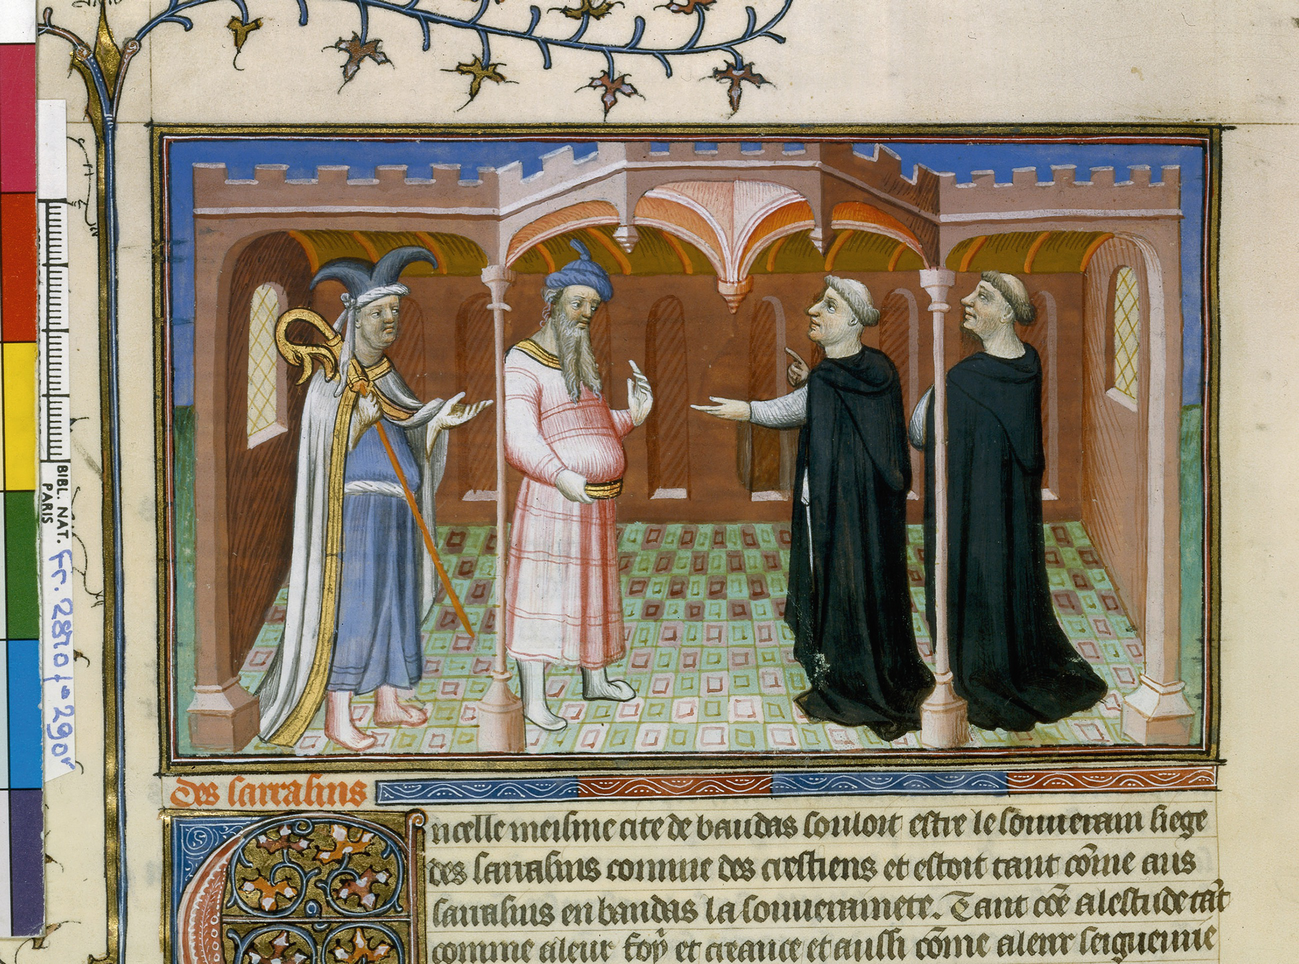 BIBL. NAT.
PARIS
Fr. 2810 fº 290v
des sarrasins
n celle meisme cite de baudas souloit estre le souuerain siege
des sarrasins comme des crestiens et estoit tant cõme aus
sarrasins en baudas la souuerainete. Tant cõe a lestude tãt
comme a leur foy et creance et aussi cõme a leur seigneurie